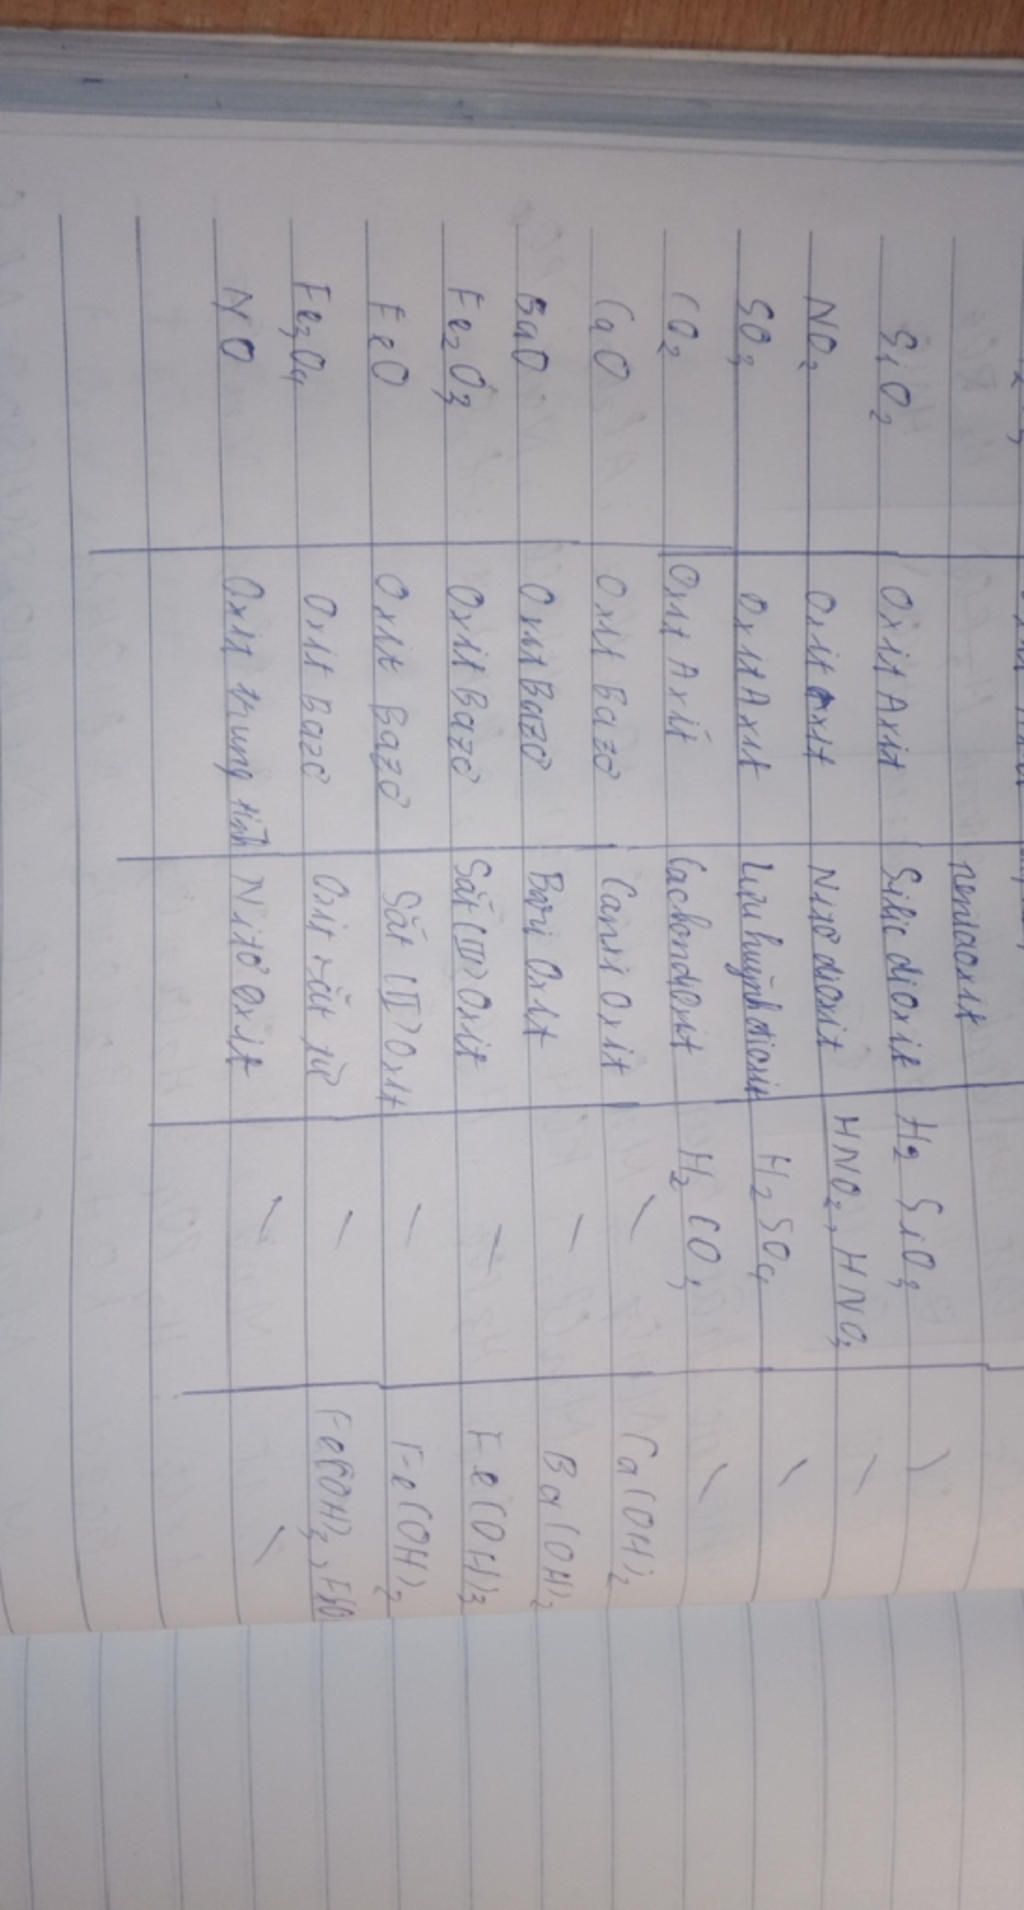 pentaoxit
SiO2 Oxit Axit Silic dioxit H2SiO3 \
NO2 Oxit Axit Nitơ dioxit HNO2, HNO3 \
SO3 Oxit Axit Lưu huỳnh đioxit H2SO4 \
CO2 Oxit Axit Cacbondioxit H2CO3 \
CaO Oxit Bazơ Canxi Oxit \ Ca(OH)2
BaO Oxit Bazơ Bari Oxit \ Ba(OH)2
Fe2O3 Oxit Bazơ Sắt (III) Oxit \ Fe(OH)3
FeO Oxit Bazơ Sắt (II) Oxit \ Fe(OH)2
Fe3O4 Oxit Bazơ Oxit sắt từ \ Fe(OH)3,
NO Oxit trung tính Nitơ Oxit \ \